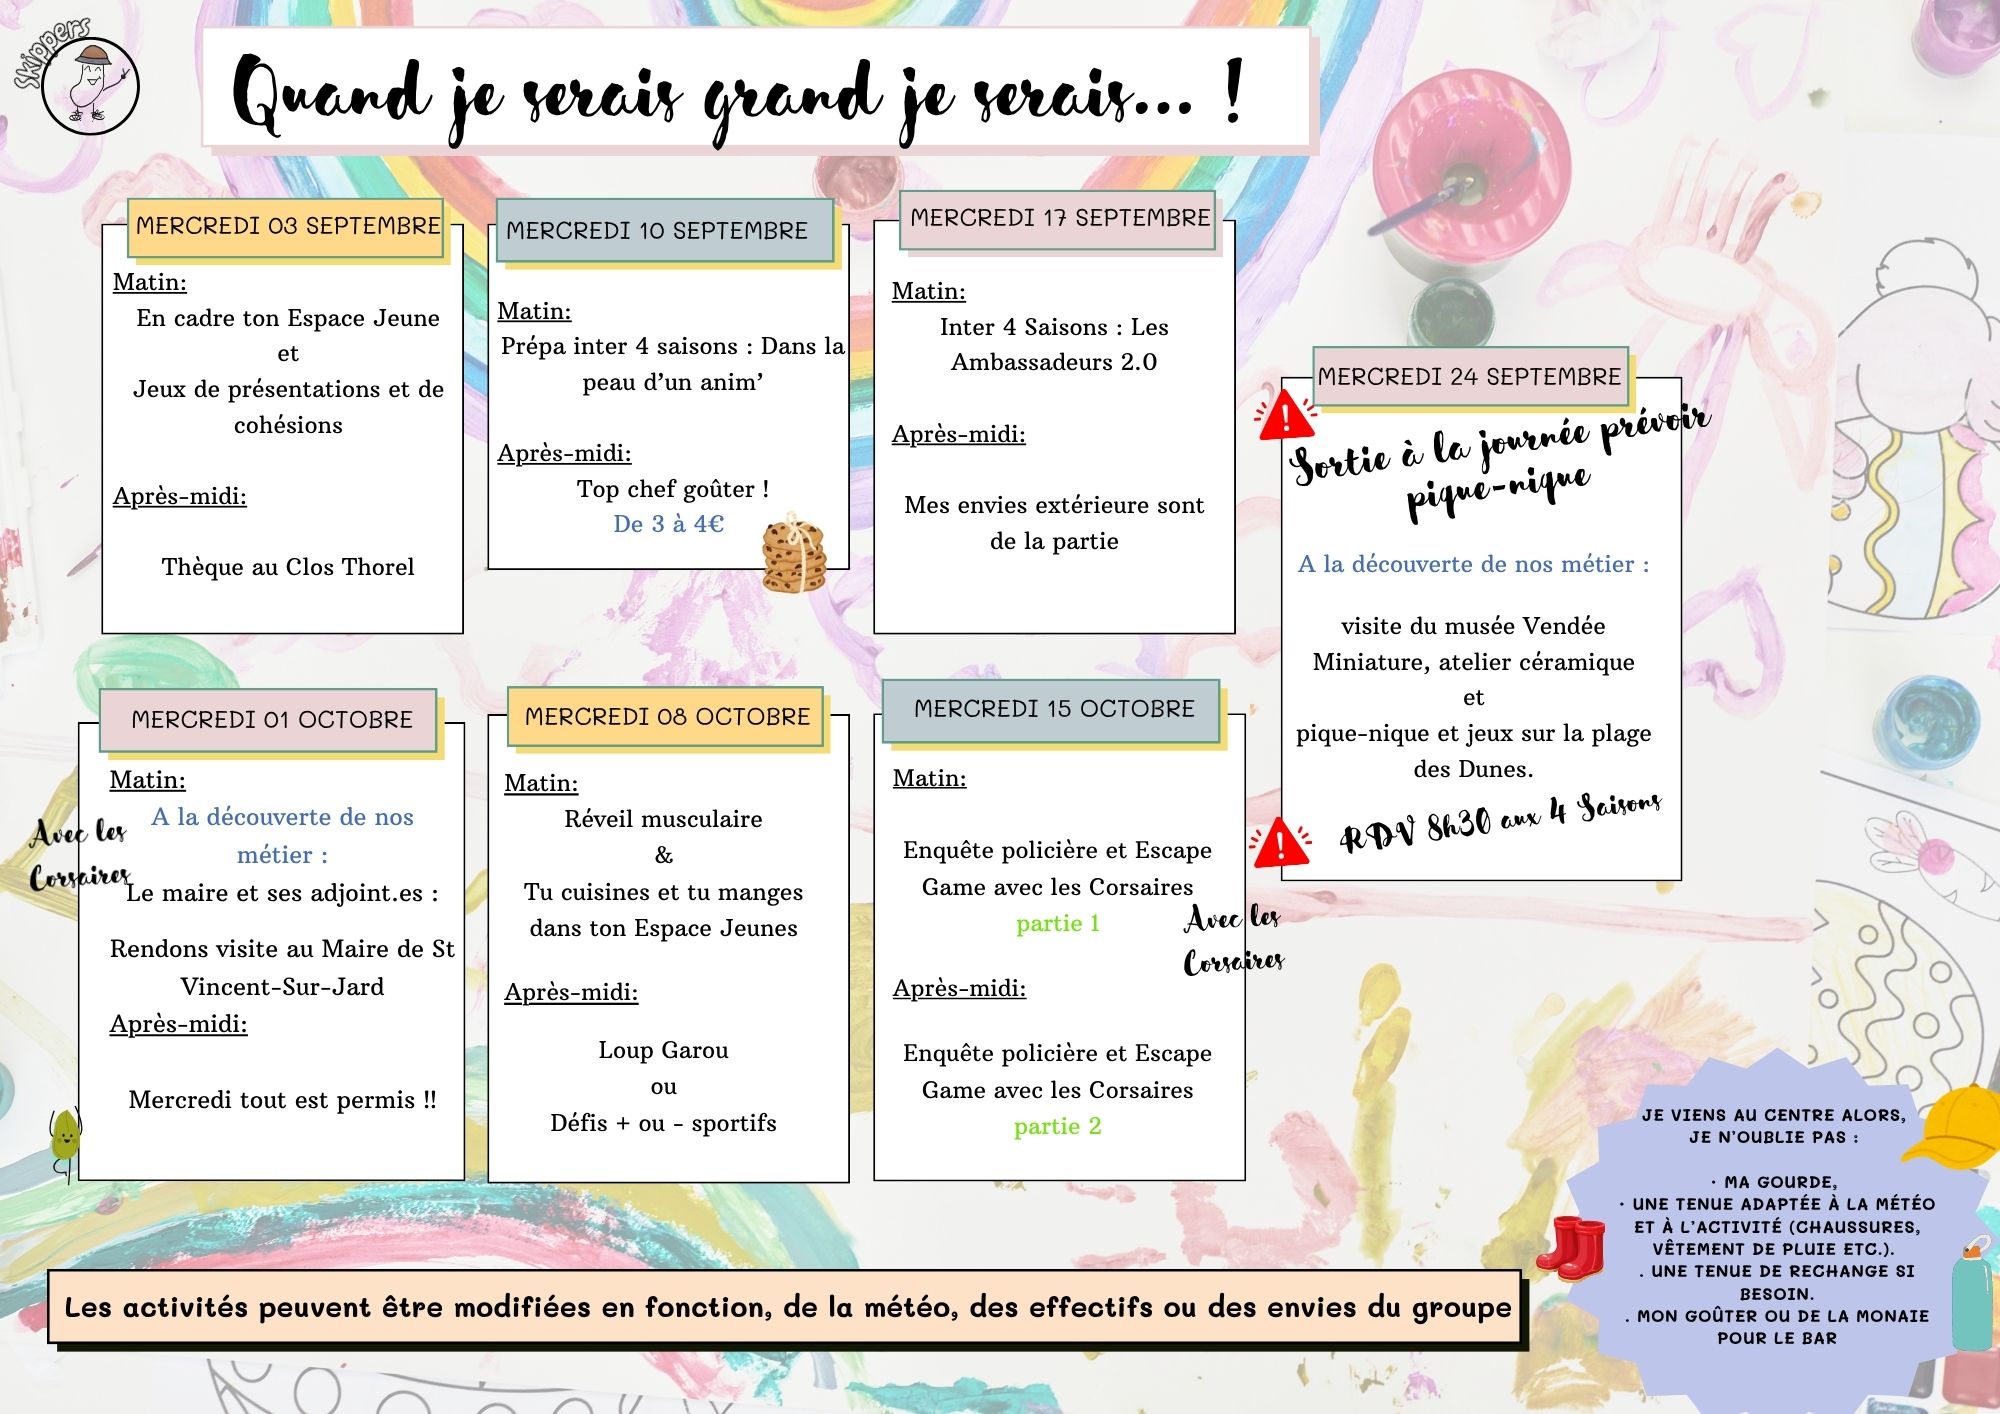 Skippers
Quand je serais grand je serais... !
MERCREDI 03 SEPTEMBRE
Matin:
En cadre ton Espace Jeune
et
Jeux de présentations et de
cohésions
Après-midi:
Thèque au Clos Thorel
MERCREDI 10 SEPTEMBRE
Matin:
Prépa inter 4 saisons : Dans la
peau d’un anim’
Après-midi:
Top chef goûter !
De 3 à 4€
MERCREDI 17 SEPTEMBRE
Matin:
Inter 4 Saisons : Les
Ambassadeurs 2.0
Après-midi:
Mes envies extérieure sont
de la partie
MERCREDI 24 SEPTEMBRE
Sortie à la journée prévoir
pique-nique
A la découverte de nos métier :
visite du musée Vendée
Miniature, atelier céramique
et
pique-nique et jeux sur la plage
des Dunes.
RDV 8h30 aux 4 Saisons
MERCREDI 01 OCTOBRE
Matin:
A la découverte de nos
métier :
Avec les
Corsaires
Le maire et ses adjoint.es :
Rendons visite au Maire de St
Vincent-Sur-Jard
Après-midi:
Mercredi tout est permis !!
MERCREDI 08 OCTOBRE
Matin:
Réveil musculaire
&
Tu cuisines et tu manges
dans ton Espace Jeunes
Après-midi:
Loup Garou
ou
Défis + ou - sportifs
MERCREDI 15 OCTOBRE
Matin:
Enquête policière et Escape
Game avec les Corsaires
partie 1
Avec les
Corsaires
Après-midi:
Enquête policière et Escape
Game avec les Corsaires
partie 2
JE VIENS AU CENTRE ALORS,
JE N’OUBLIE PAS :
· MA GOURDE,
· UNE TENUE ADAPTÉE À LA MÉTÉO
ET À L’ACTIVITÉ (CHAUSSURES,
VÊTEMENT DE PLUIE ETC.).
. UNE TENUE DE RECHANGE SI
BESOIN.
. MON GOÛTER OU DE LA MONAIE
POUR LE BAR
Les activités peuvent être modifiées en fonction, de la météo, des effectifs ou des envies du groupe